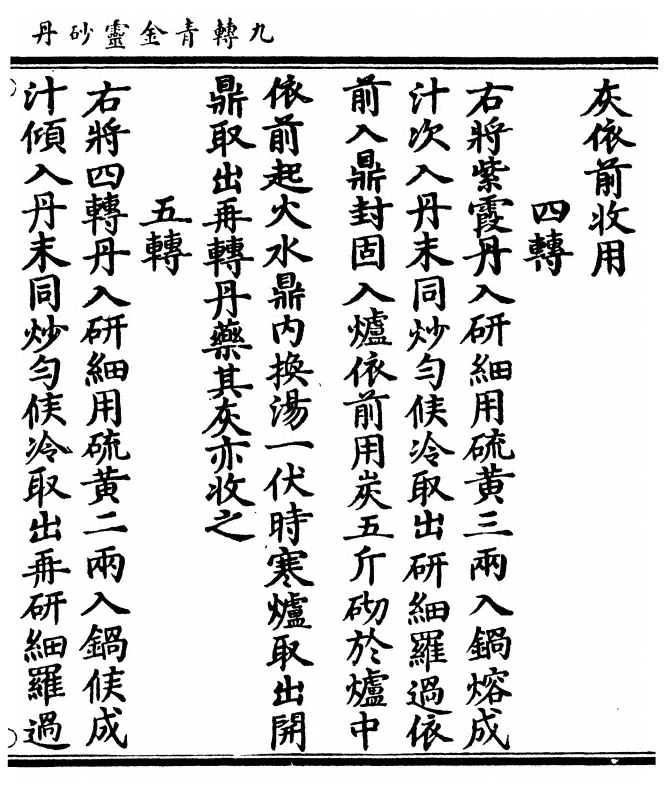 九轉青金靈砂丹
灰依前收用
四轉
右將紫霞丹入研細用硫黃三兩入鍋熔成
汁次入丹末同炒勻候冷取出研細羅過依
前入鼎封固入爐依前用炭五斤砌於爐中
依前起火水鼎內換湯一伏時寒爐取出開
鼎取出再轉丹藥其灰亦收之
五轉
右將四轉丹入研細用硫黃二兩入鍋候成
汁傾入丹末同炒勻候冷取出再研細羅過